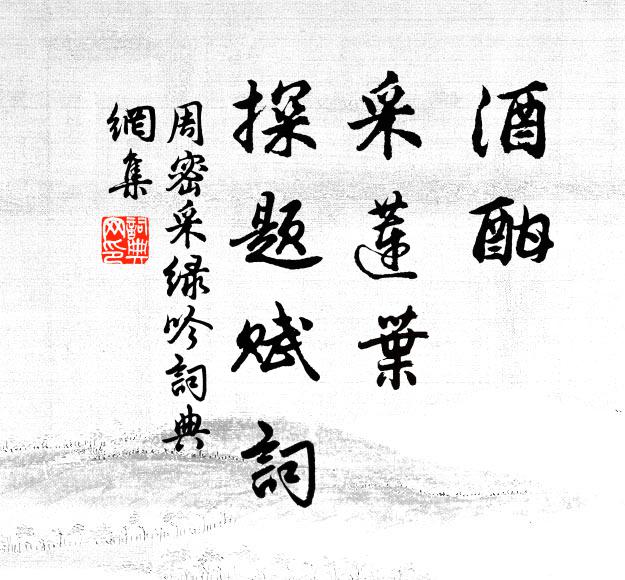 酒酣
采蓮葉
探題賦詞
周密采緑吟詞典
網集
詞典
网印